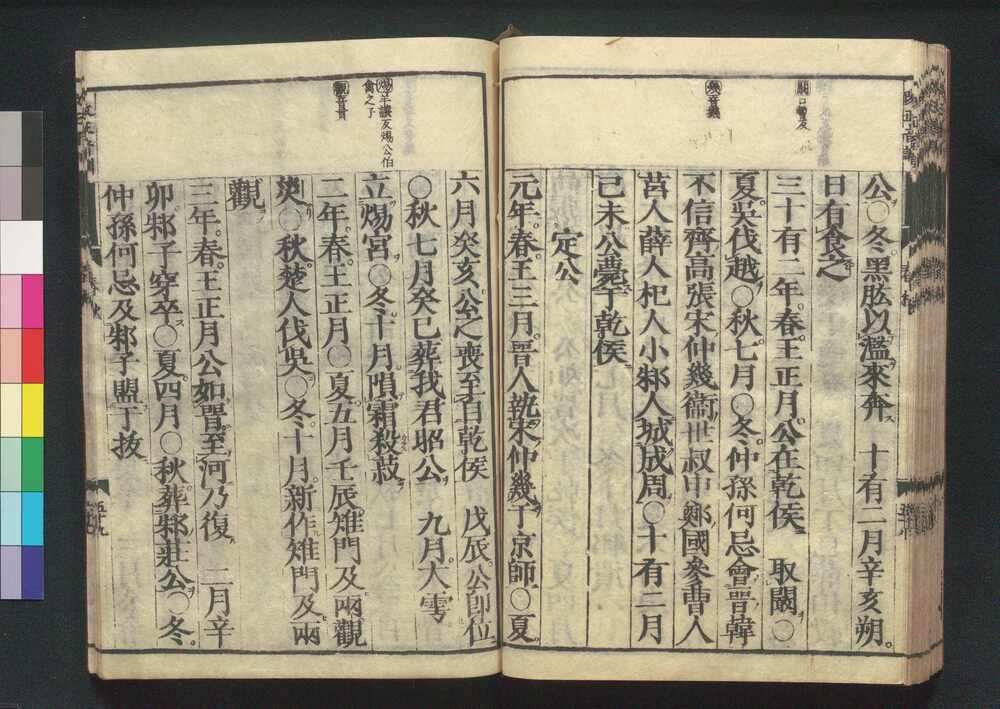 闞口暫反
幾音機
公○冬黑肱以濫來奔　十有二月辛亥朔
日有食之
三十有二年春王正月公在乾侯　取闞○
夏吳伐越○秋七月○冬仲孫何忌會晉韓
不信齊高張宋仲幾衞世叔申鄭國參曹人
莒人薛人杞人小邾人城成周○十有二月
己未公薨于乾侯
定公
元年春王三月晉人執宋仲幾于京師○夏
煬羊讓反煬公伯
禽之子
觀音貫
六月癸亥公之喪至自乾侯　戊辰公即位
○秋七月癸巳葬我君昭公　九月大雩
立煬宮○冬十月隕霜殺菽
二年春王正月○夏五月壬辰雉門及兩觀
災○秋楚人伐吳○冬十月新作雉門及兩
觀
三年春王正月公如晉至河乃復　二月辛
卯邾子穿卒○夏四月○秋葬邾莊公○冬
仲孫何忌及邾子盟于拔